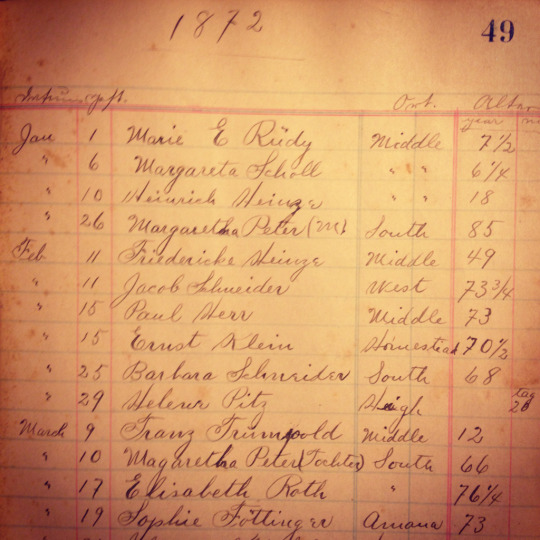 1872
49
Ort. Alter
year
Jan 1 Marie E Rüdy Middle 7 1/2
" 6 Margareta Scholl " " 6 1/4
" 10 Heinrich Heinze " " 18
" 26 Margaretha Peter (M) South 85
Feb. 11 Friedericke Heinze Middle 49
" 11 Jacob Schneider West 73 3/4
" 15 Paul Herr Middle 73
" 15 Ernst Klein Homestead 70 1/2
" 25 Barbara Schneider South 68
" 29 Helene Pitz High tag 28
March 9 Franz Trumpold Middle 12
" 10 Magaretha Peter (Tochter) South 66
" 17 Elisabeth Roth " 76 1/4
" 19 Sophie Föttinger Amana 73